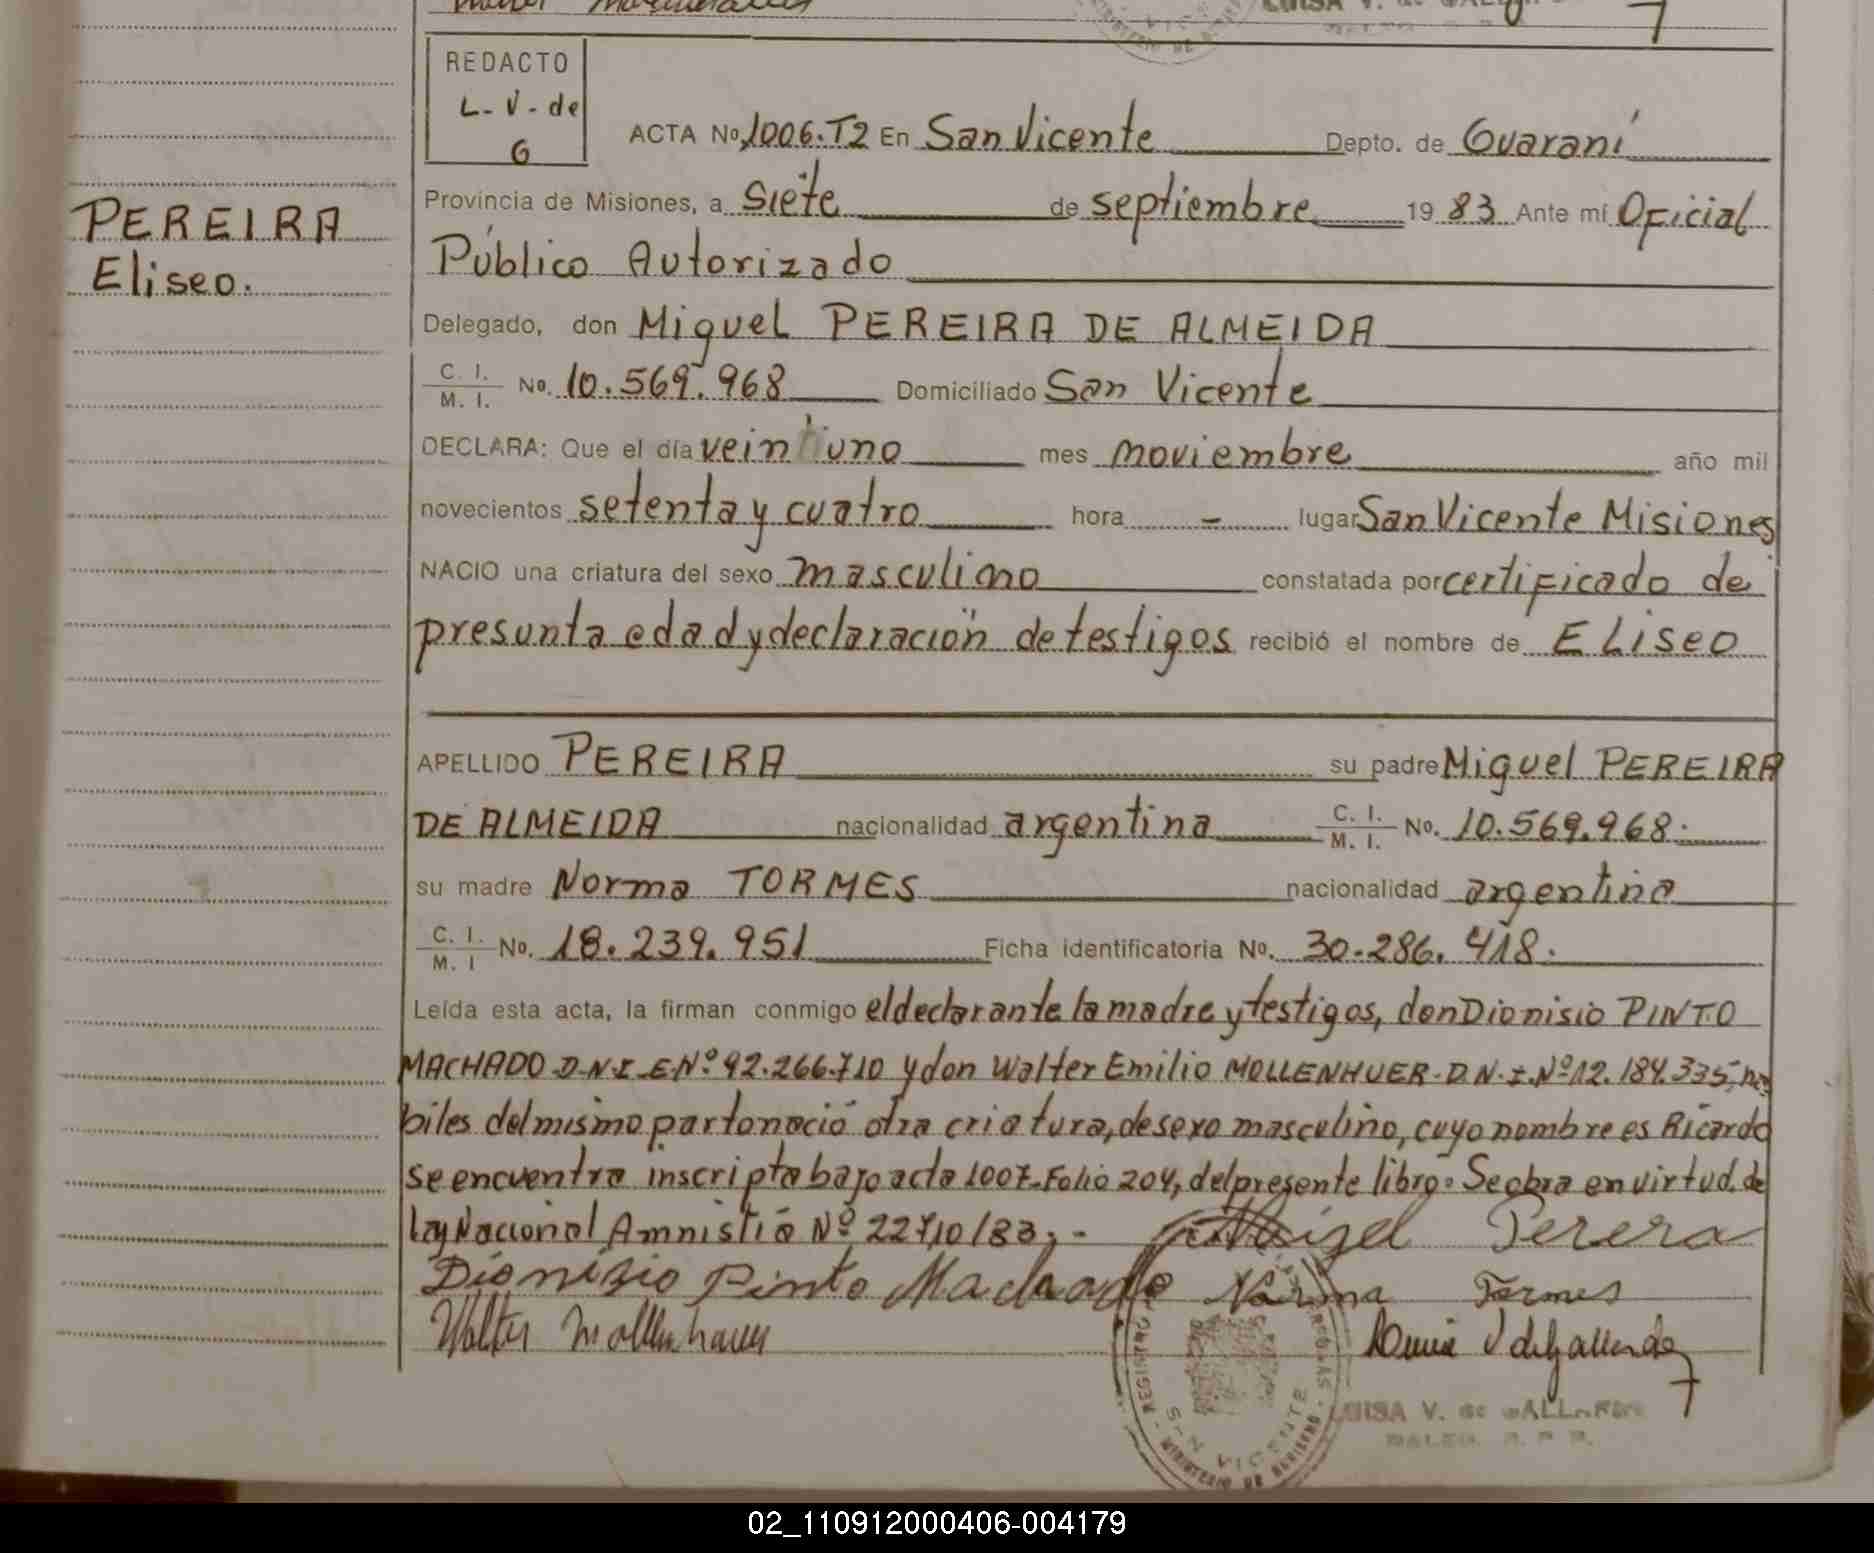 REDACTO
L-V-de
G
ACTA No. 1006.T2 En San Vicente Depto. de Guaraní
Provincia de Misiones, a Siete de septiembre 1983 Ante mí Oficial
PEREIRA
Público Autorizado
Eliseo.
Delegado, don Miguel PEREIRA DE ALMEIDA
C. I. M. I. No. 10.569.968 Domiciliado San Vicente
DECLARA: Que el día veintiuno mes noviembre año mil
novecientos setenta y cuatro hora - lugar San Vicente Misiones
NACIO una criatura del sexo masculino constatada por certificado de
presunta edad y declaración de testigos recibió el nombre de ELISEO
APELLIDO PEREIRA su padre Miguel PEREIRA
DE ALMEIDA nacionalidad argentina C. I. M. I. No. 10.569.968.
su madre Norma TORMES nacionalidad argentina
C. I. M. I No. 18.239.951 Ficha identificatoria No. 30.286.418.
Leída esta acta, la firman conmigo el declarante la madre y testigos, don Dionisio PINTO
MACHADO D.N.I.E.Nº 92.266.710 y don Walter Emilio MOLLENHUER. D.N.I.Nº 12.184.335, há
biles del mismo parto nació otra criatura, de sexo masculino, cuyo nombre es Ricardo
se encuentra inscripta bajo acta 1007-Folio 204, del presente libro. Se obra en virtud de
Ley Nacional Amnistía Nº 22710/83.-
Migel Perera
Dionisio Pinto Machado Norma Tormes
Walter Mollenhauer
SAN VICENTE
LUISA V. de GALLARDO
02_110912000406-004179